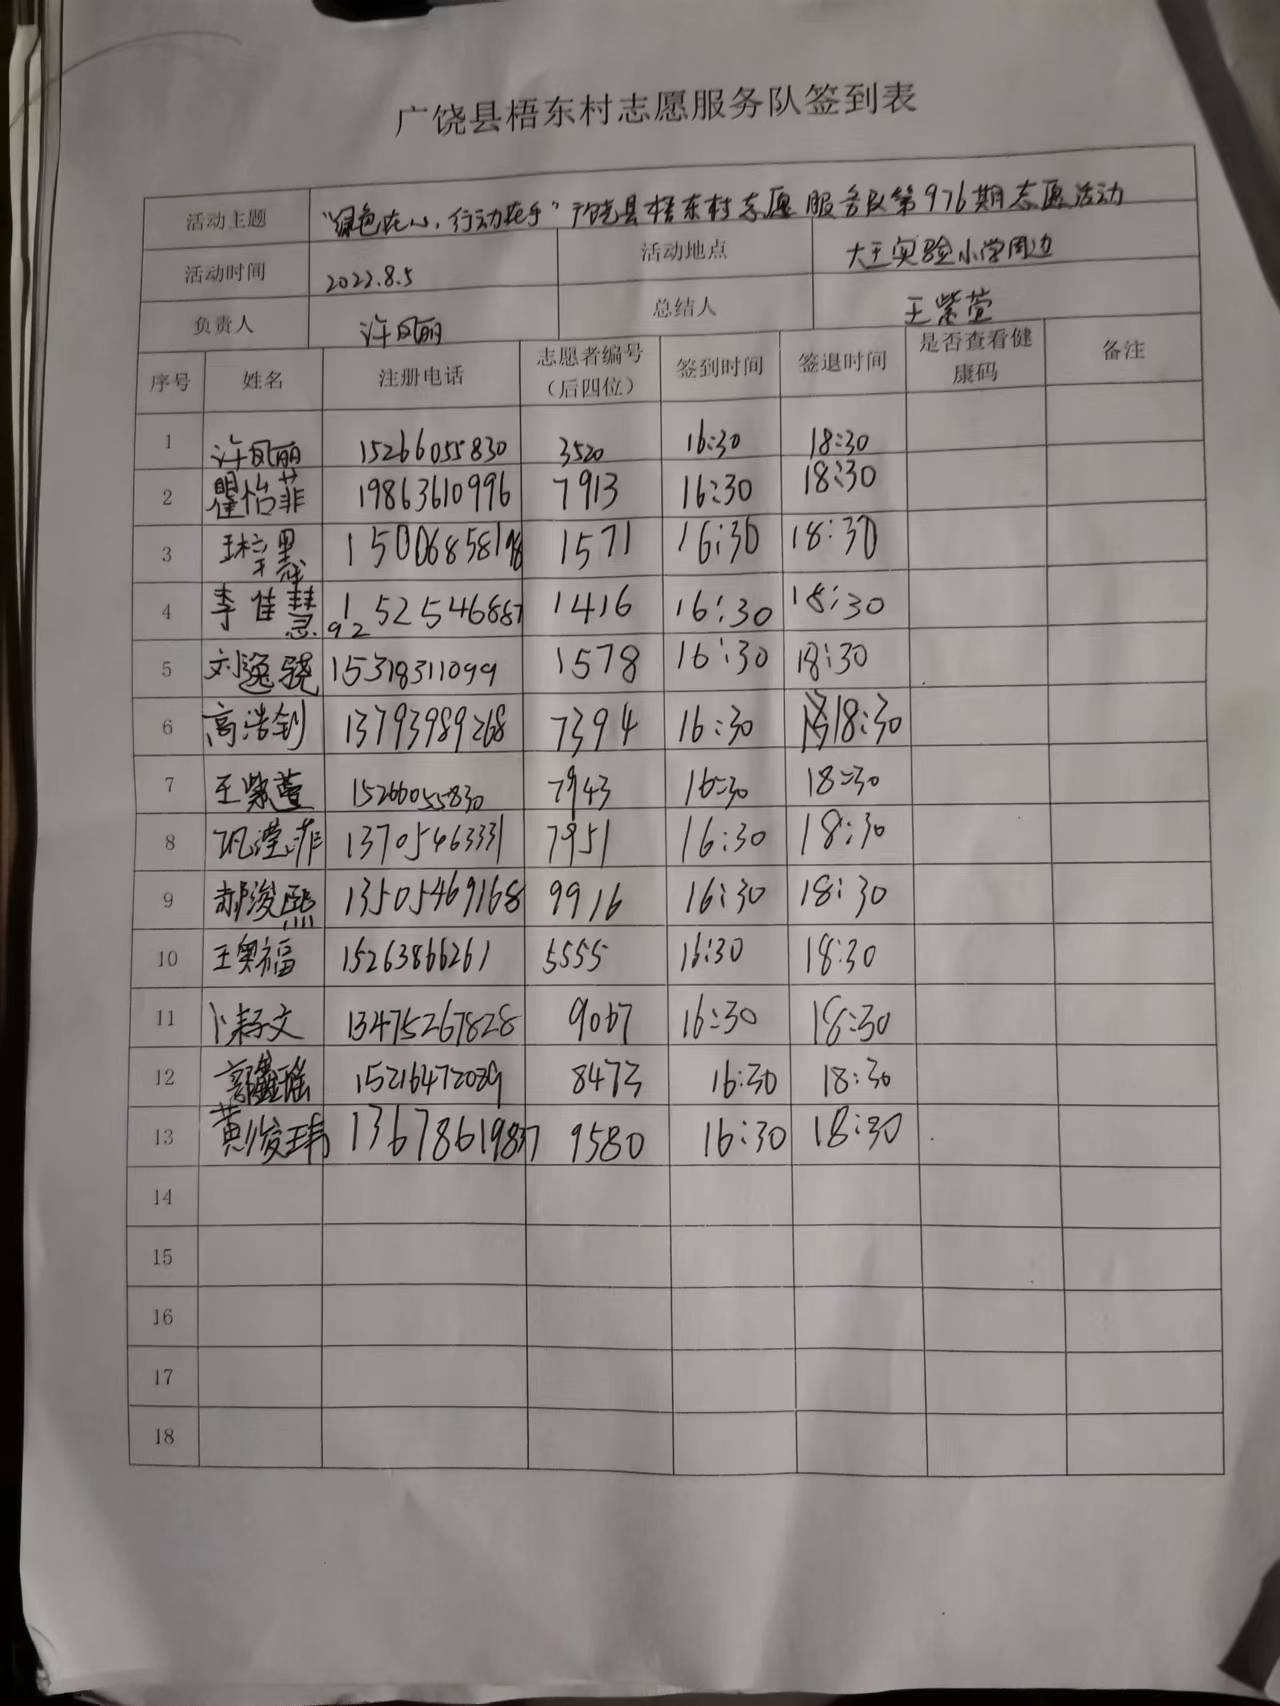 广饶县梧东村志愿服务队签到表
活动主题 “绿色在心，行动在手”广饶县梧东村志愿服务队第976期志愿活动
活动时间 2022.8.5 活动地点 大王实验小学周边
负责人 许凤丽 总结人 王紫萱
序号 姓名 注册电话 志愿者编号（后四位） 签到时间 签退时间 是否查看健康码 备注
1 许凤丽 15266055830 3520 16:30 18:30
2 瞿怡菲 19863610996 7913 16:30 18:30
3 15006858198 1571 16:30 18:30
4 李佳慧 1416 16:30 18:30
5 刘逸骁 15318311099 1578 16:30 18:30
6 高浩钊 13793989268 7394 16:30 18:30
7 王紫萱 15266055830 7943 16:30 18:30
8 巩滢菲 13705463331 7951 16:30 18:30
9 郝浚熙 13505469168 9916 16:30 18:30
10 王奥福 15263866261 5555 16:30 18:30
11 卜耔文 13475267828 9067 16:30 18:30
12 15216472089 8473 16:30 18:30
13 黄俊玮 13678619837 9580 16:30 18:30
14
15
16
17
18